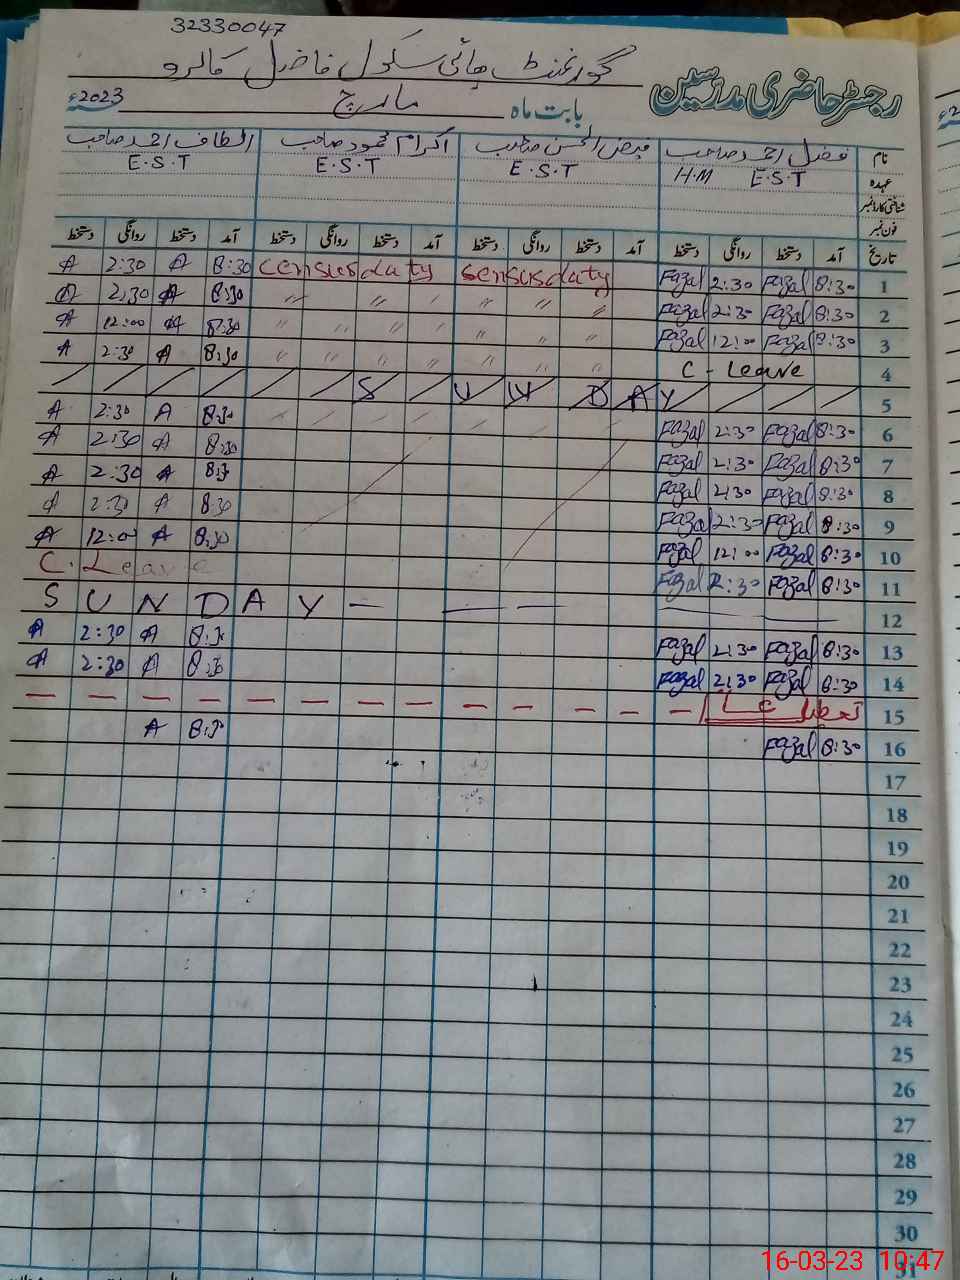 32330047
گورنمنٹ ہائی سکول فاضل کالرو
رجسٹر حاضری مدرسین
بابت ماہ مارچ 2023ء
نام فضل احمد صاحب فیض الحسن صاحب اکرام محمود صاحب الطاف احمد صاحب
عہدہ E.S.T H.M E.S.T E.S.T E.S.T
شناختی کارڈ نمبر
فون نمبر
تاریخ آمد دستخط روانگی دستخط آمد دستخط روانگی دستخط آمد دستخط روانگی دستخط آمد دستخط روانگی دستخط
1 8:30 Fazal 2:30 Fazal sensus daty census daty 8:30 A 2:30 A
2 8:30 Fazal 2:30 Fazal 〃 〃 〃 〃 〃 〃 8:30 A 2:30 A
3 8:30 Fazal 12:00 Fazal 〃 〃 〃 〃 〃 〃 8:30 A 12:00 A
4 C-Leave 〃 〃 〃 〃 〃 〃 8:30 A 2:30 A
5 S U N D A Y
6 8:30 Fazal 2:30 Fazal 8:30 A 2:30 A
7 8:30 Fazal 2:30 Fazal 8:30 A 2:30 A
8 8:30 Fazal 2:30 Fazal 8:30 A 2:30 A
9 8:30 Fazal 2:30 Fazal 8:30 A 2:30 A
10 8:30 Fazal 12:00 Fazal 8:30 A 12:00 A
11 8:30 Fazal 2:30 Fazal C. Leave
12 S U N D A Y
13 8:30 Fazal 2:30 Fazal 8:30 A 2:30 A
14 8:30 Fazal 2:30 Fazal 8:30 A 2:30 A
15 تعطیل
16 8:30 Fazal 8:30 A
17
18
19
20
21
22
23
24
25
26
27
28
29
30
31
16-03-23 10:47